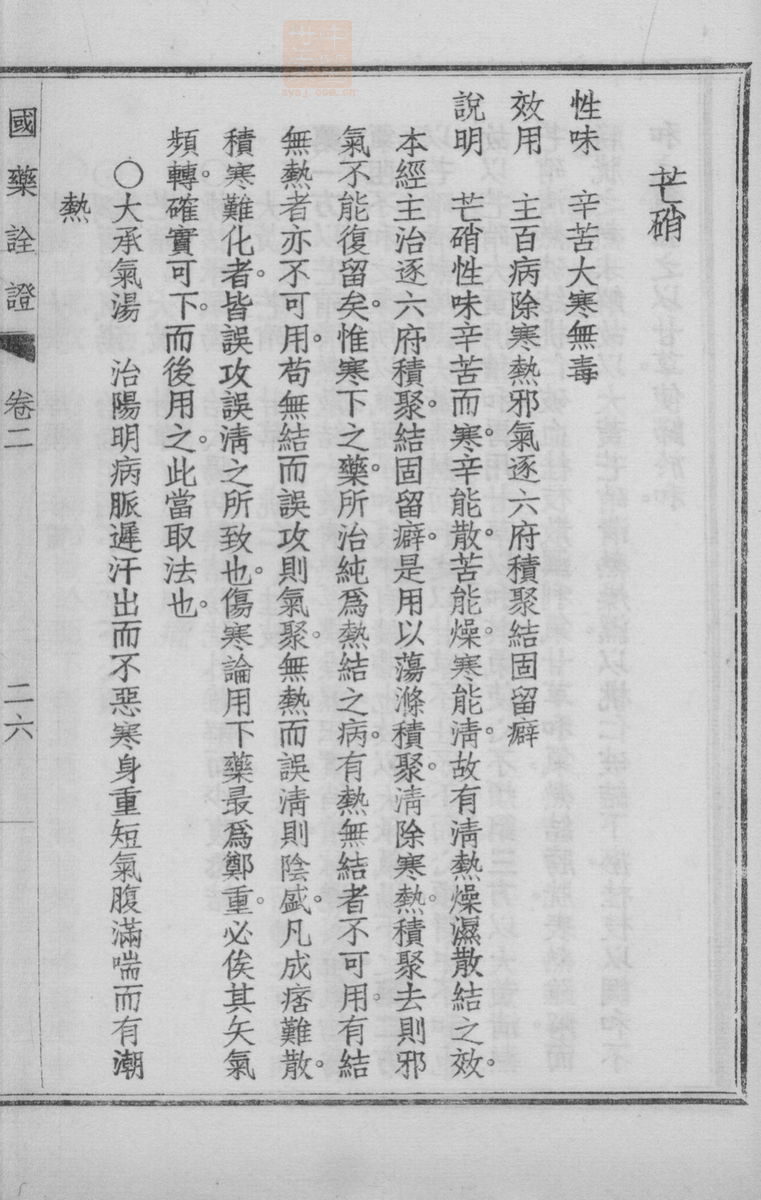 芒硝
性味　辛苦大寒無毒
效用　主百病除寒熱邪氣逐六府積聚結固留癖
說明　芒硝性味辛苦而寒。辛能散。苦能燥。寒能淸。故有淸熱燥濕散結之效。
本經主治逐六府積聚。結固留癖。是用以蕩滌積聚。淸除寒熱。積聚去則邪
氣不能復留矣。惟寒下之藥。所治純爲熱結之病。有熱無結者不可用。有結
無熱者亦不可用。苟無結而誤攻則氣聚。無熱而誤淸則陰盛。凡成痞難散。
積寒難化者。皆誤攻誤淸之所致也。傷寒論用下藥最爲鄭重。必俟其矢氣
頻轉。確實可下。而後用之。此當取法也。
○大承氣湯　治陽明病脈遲汗出而不惡寒身重短氣腹滿喘而有潮
熱
國藥詮證　卷二　二六